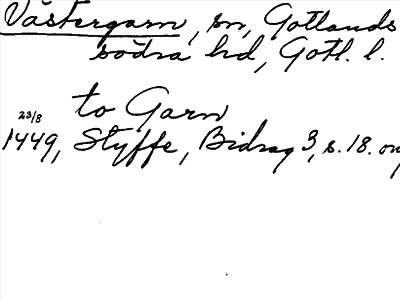 Västergarn, sn, Gotlands
södra hd, Gotl. l.
to Garn
23/8
1449, Styffe, Bidrag 3, s. 18. or